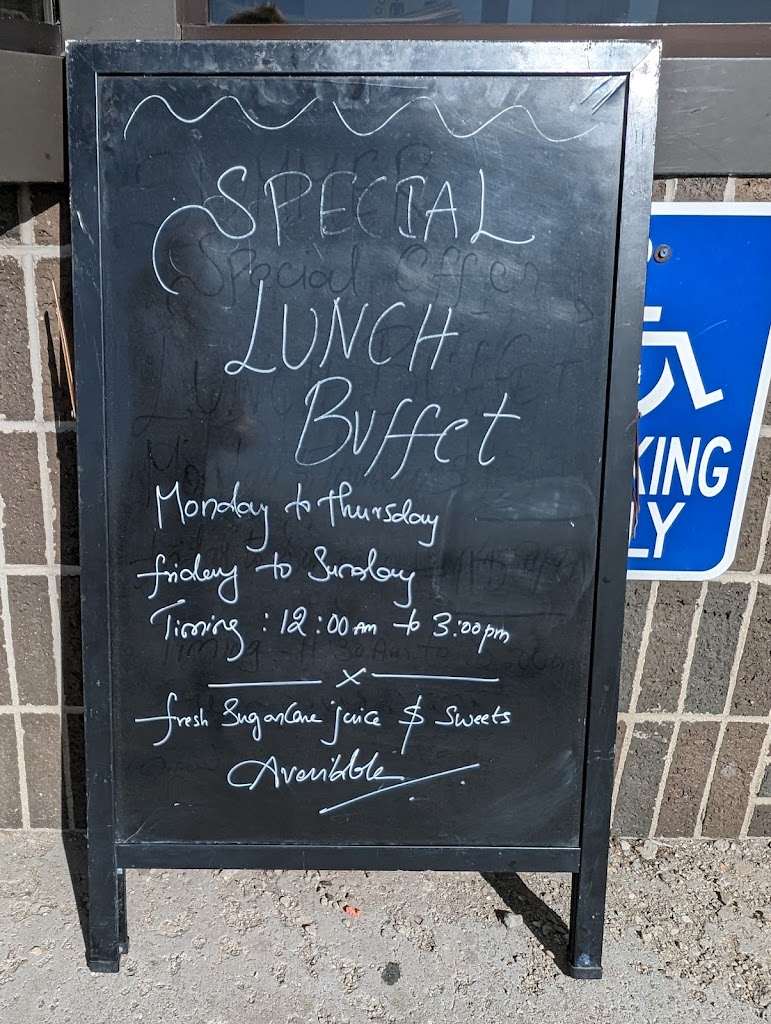 SPECIAL
LUNCH
Buffet
Monday to thursday
friday to Sunday
Timing : 12:00 AM to 3:00 pm
x
fresh Sugarcane juice $ Sweets
Avenible
KING
LY
Special Offer